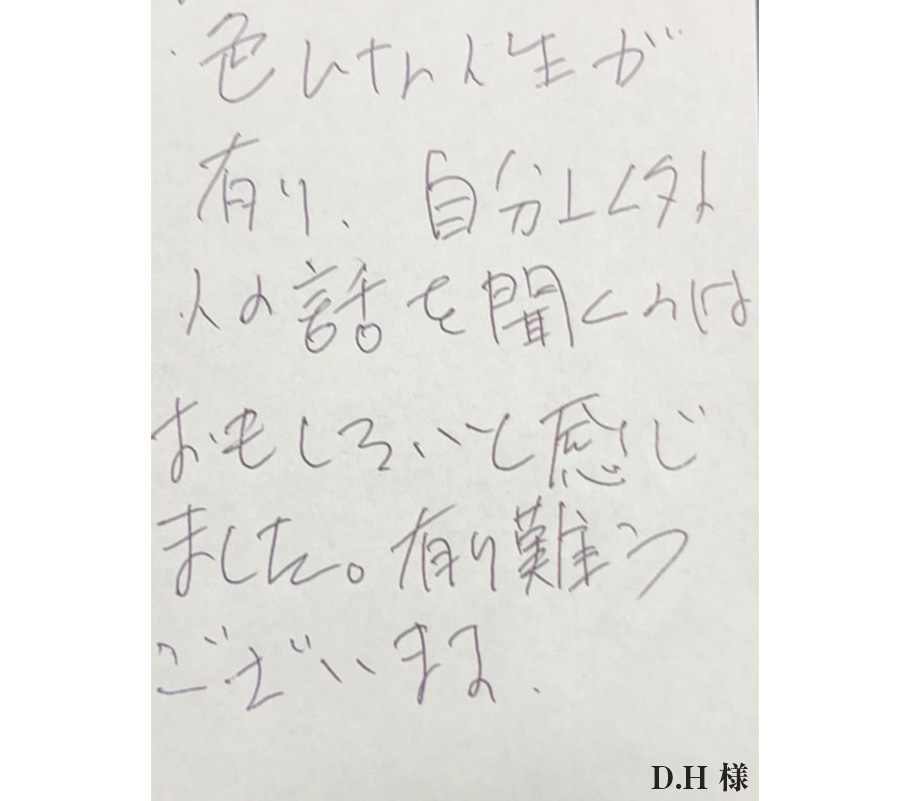 色んな人生が
有り、自分以外
人の話を聞くのは
おもしろいと感じ
ました。有り難う
ございます.
D.H 様